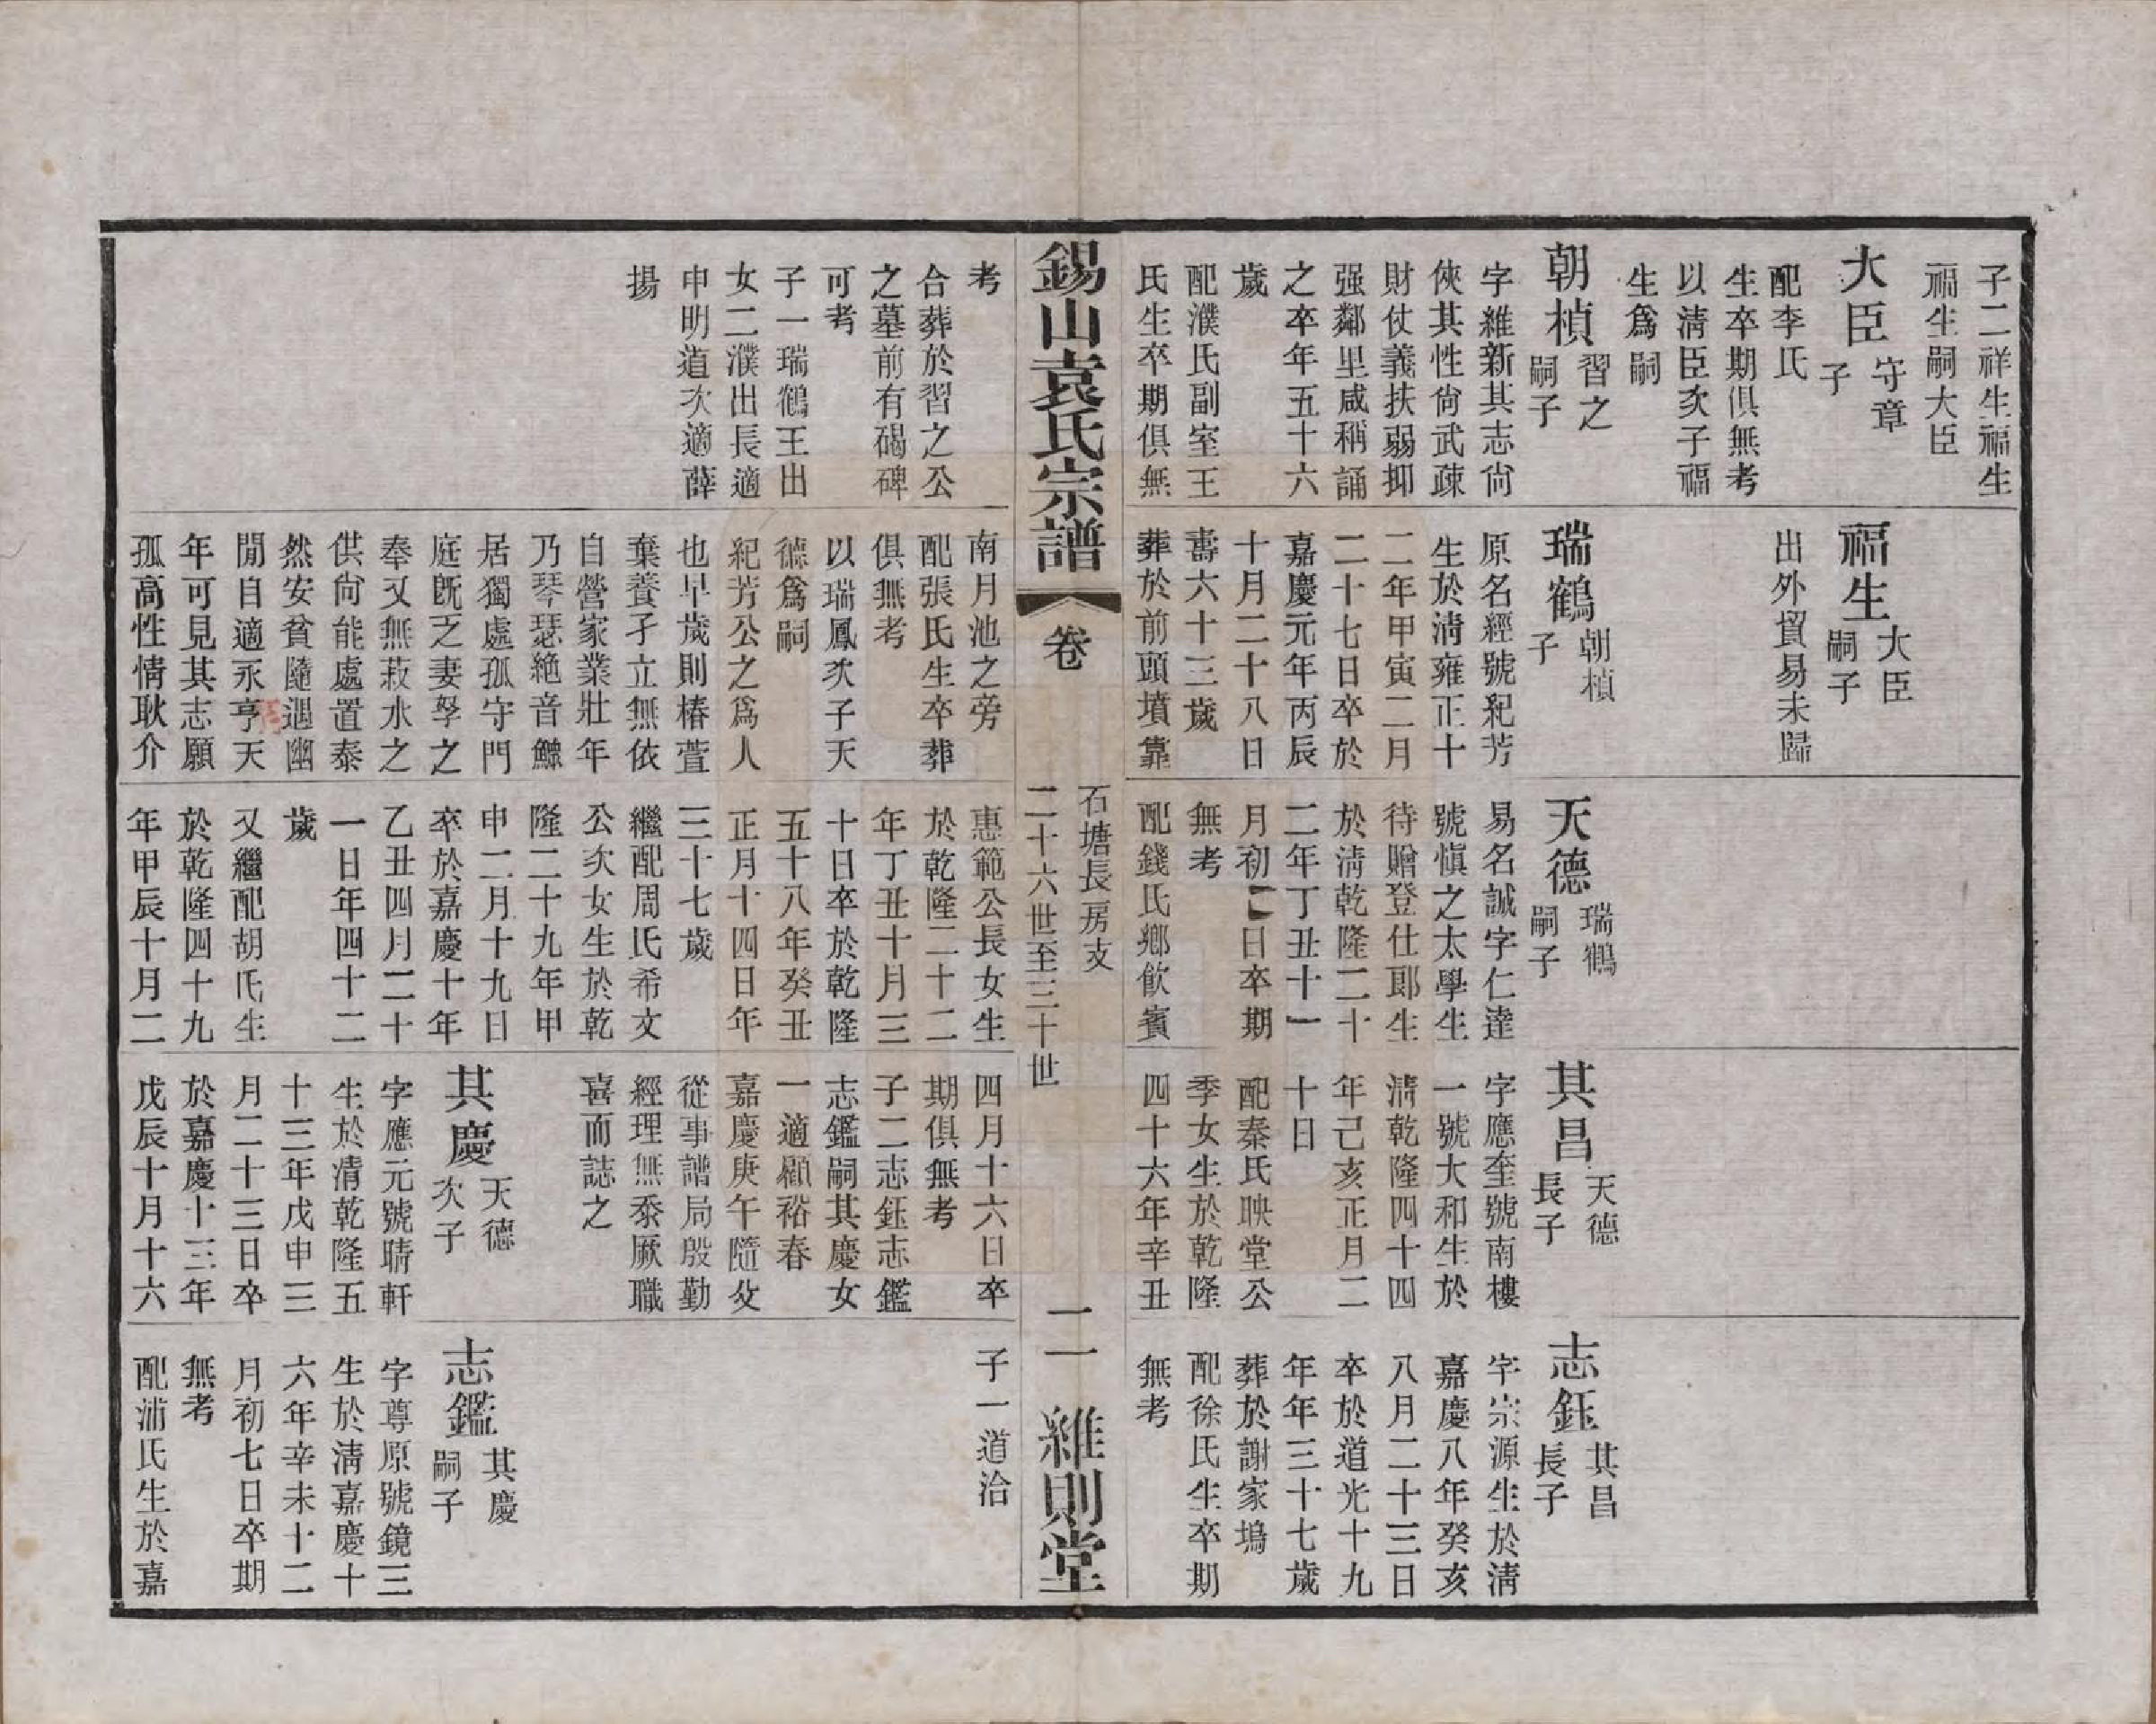 子二祥生福生
福生嗣大臣
大臣
守章
子
配李氏
生卒期俱無考
以清臣次子福
生爲嗣
朝楨
習之
嗣子
字維新其志尙
俠其性尙武疎
財仗義扶弱抑
强鄰里咸稱誦
之卒年五十六
歲
配濮氏副室王
氏生卒期俱無
福生
大臣
嗣子
出外貿易未歸
瑞鶴
朝楨
子
原名經號紀芳
生於淸雍正十
二年甲寅二月
二十七日卒於
嘉慶元年丙辰
十月二十八日
壽六十三歲
葬於前頭墳靠
天德
瑞鶴
嗣子
易名誠字仁達
號愼之太學生
待贈登仕郎生
於淸乾隆二十
二年丁丑十一
月初二日卒期
無考
配錢氏鄉飮賓
其昌
天德
長子
字應奎號南樓
一號大和生於
淸乾隆四十四
年己亥正月二
十日
配秦氏映堂公
季女生於乾隆
四十六年辛丑
志鈺
其昌
長子
字宗源生於淸
嘉慶八年癸亥
八月二十三日
卒於道光十九
年年三十七歲
葬於謝家塢
配徐氏生卒期
無考
錫山袁氏宗譜
卷
石塘長房支
二十六世至三十世
二
維則堂
考
合葬於習之公
之墓前有碣碑
可考
子一瑞鶴王出
女二濮出長適
申明道次適薛
揚
南月池之旁
配張氏生卒葬
俱無考
以瑞鳳次子天
德爲嗣
紀芳公之爲人
也早歲則椿萱
棄養孑立無依
自營家業壯年
乃琴瑟絶音鰥
居獨處孤守門
庭旣乏妻孥之
奉又無菽水之
供尙能處置泰
然安貧隨遇幽
閒自適永亨天
年可見其志願
孤高性情耿介
惠範公長女生
於乾隆二十二
年丁丑十月三
十日卒於乾隆
五十八年癸丑
正月十四日年
三十七歲
繼配周氏希文
公次女生於乾
隆二十九年甲
申二月十九日
卒於嘉慶十年
乙丑四月二十
一日年四十二
歲
又繼配胡氏生
於乾隆四十九
年甲辰十月二
四月十六日卒
期俱無考
子二志鈺志鑑
志鑑嗣其慶女
一適顧裕春
嘉慶庚午隨父
從事譜局殷勤
經理無忝厥職
喜而誌之
其慶
天德
次子
字應元號晴軒
生於淸乾隆五
十三年戊申三
月二十三日卒
於嘉慶十三年
戊辰十月十六
子一道洽
志鑑
其慶
嗣子
字尊原號鏡三
生於淸嘉慶十
六年辛未十二
月初七日卒期
無考
配浦氏生於嘉